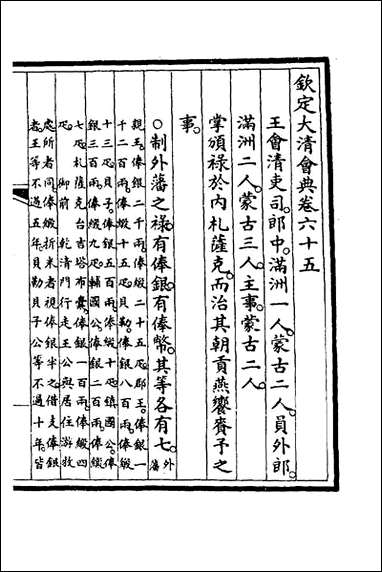 欽定大清會典卷六十五
王會清吏司。郎中。滿洲一人。蒙古二人。員外郎。
滿洲二人。蒙古三人。主事。蒙古二人。
掌頒祿於內札薩克。而治其朝貢燕饗賚予之
事。
○制外藩之祿。有俸銀。有俸幣。其等各有七。外藩
親王。俸銀二千兩。俸緞二十五疋。郡王。俸銀一
千二百兩。俸緞十五疋。貝勒。俸銀八百兩。俸緞
十三疋。貝子。俸銀五百兩。俸緞十疋。鎮國公。俸
銀三百兩。俸緞九疋。輔國公。俸銀二百兩。俸緞
七疋。札薩克台吉塔布囊。俸銀一百兩。俸緞四
疋。 御前 乾清門行走王公。與居住游牧
處所同。俸緞折米者。視俸銀半之。借支俸銀
者。王等不過五年。貝勒貝子公等不過十年。皆